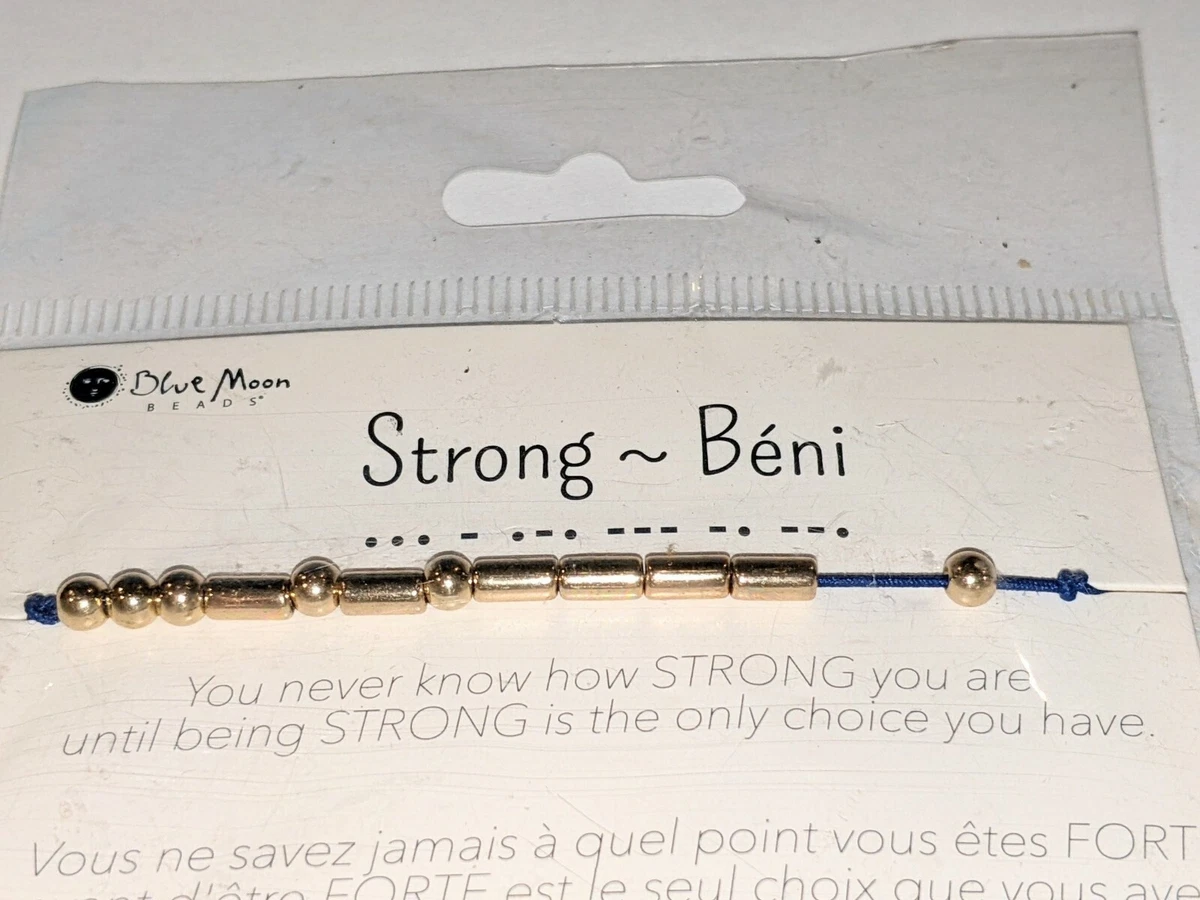 Blue Moon
BEADS®
Strong ~ Béni
••• - •-• --- -• --•
You never know how STRONG you are
until being STRONG is the only choice you have.
Vous ne savez jamais à quel point vous êtes FORT
d'être FORTE est le seul choix que vous ave